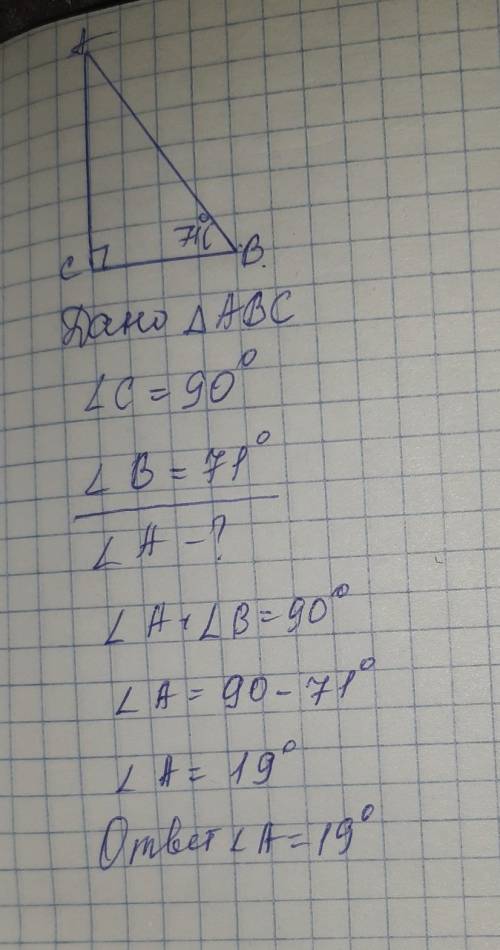 A
71°
C
B.
Дано △ABC
∠C = 90°
∠B = 71°
∠A - ?
∠A + ∠B = 90°
∠A = 90 - 71°
∠A = 19°
Ответ ∠A = 19°